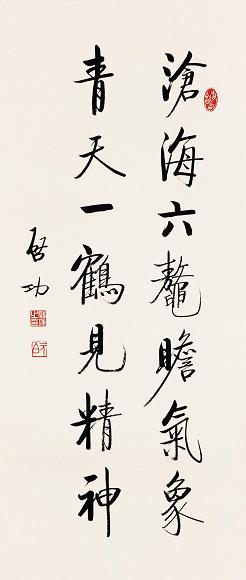 滄海六鼇瞻氣象
青天一鶴見精神
啓功